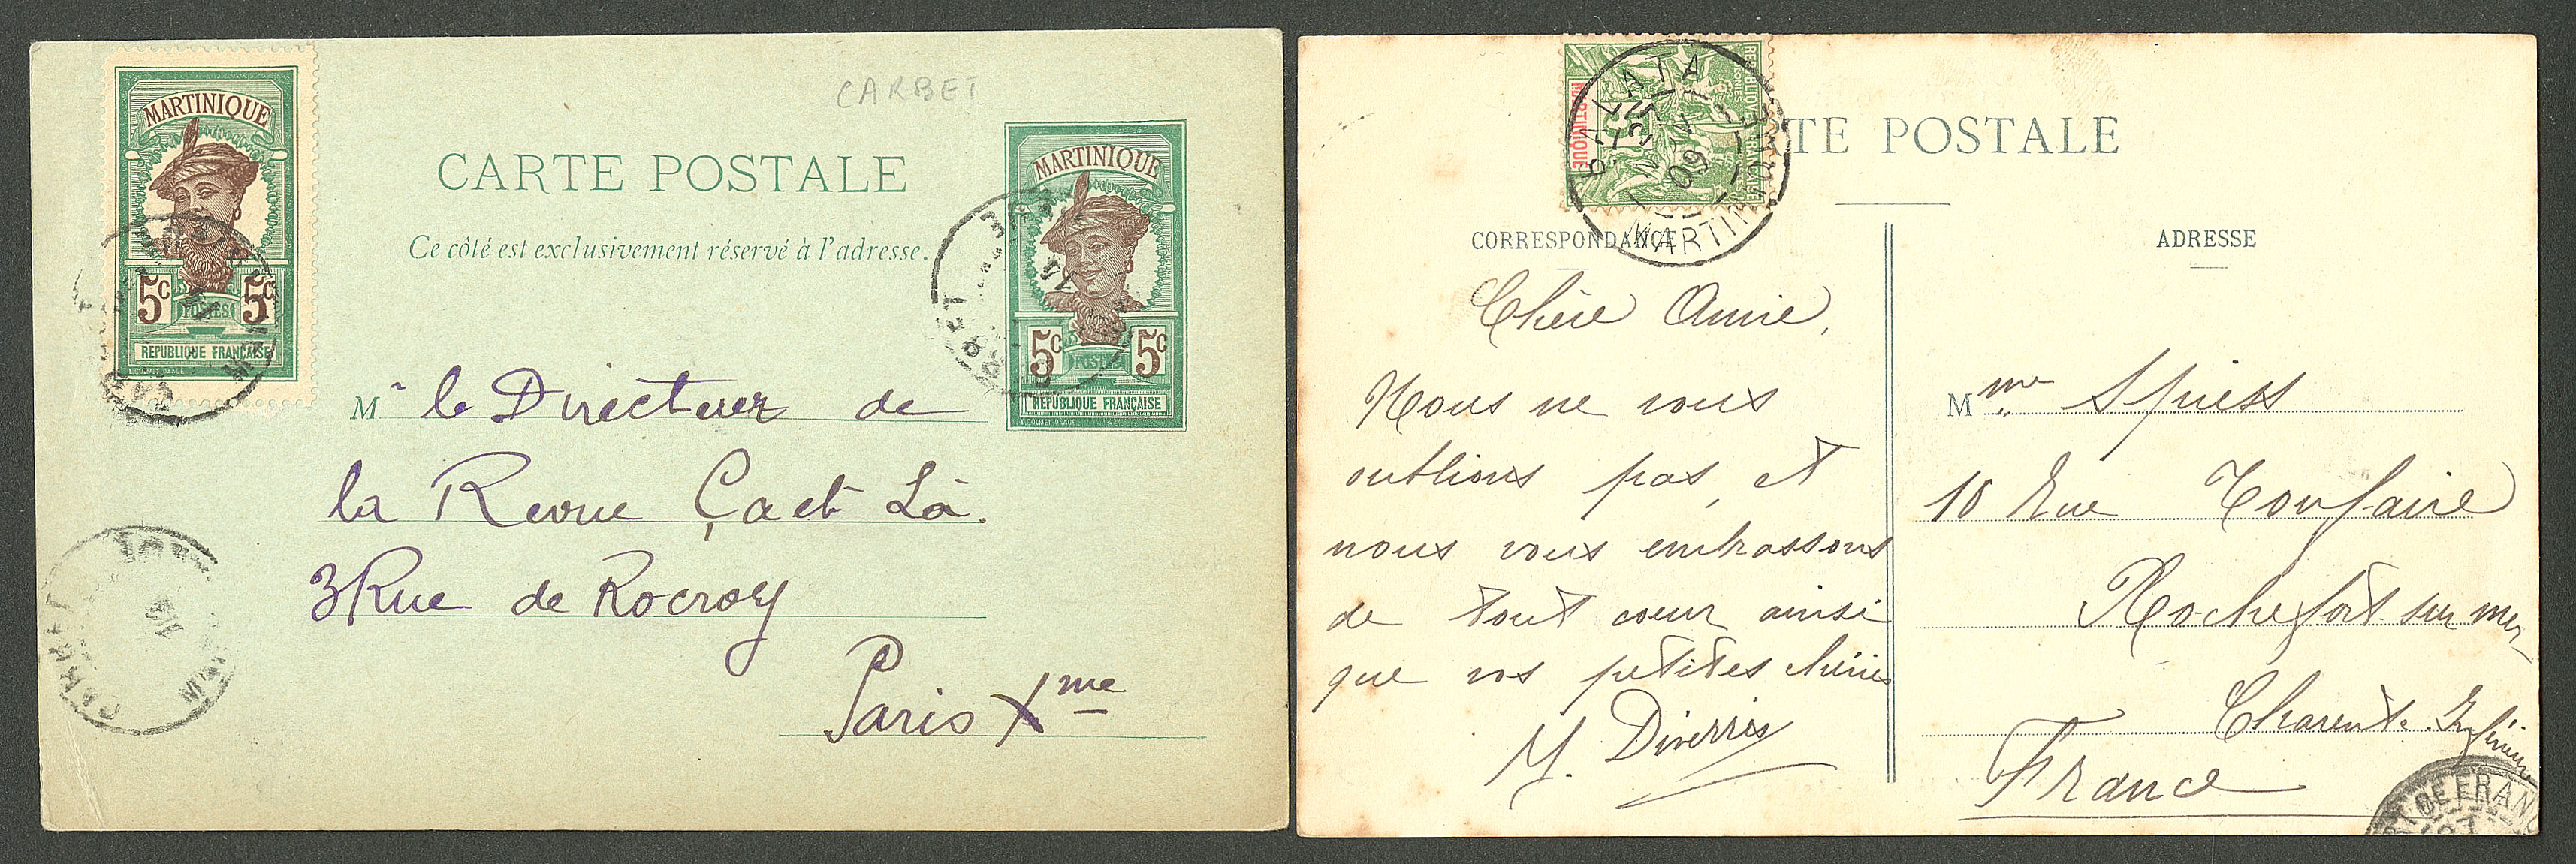 CARBET
MARTINIQUE
5c 5c
POSTES
REPUBLIQUE FRANÇAISE
CARTE POSTALE
Ce côté est exclusivement réservé à l'adresse.
MARTINIQUE
5c 5c
POSTES
REPUBLIQUE FRANÇAISE
M r le Directeur de
la Revue Ça et Là.
3 Rue de Rocroy
Paris Xme
CARBET
MARTINIQUE
BALATA
09
MARTINIQUE
TE POSTALE
CORRESPONDANCE
ADRESSE
Chère Amie,
Nous ne vous
oublions pas, et
nous vous embrassons
de tout coeur ainsi
que vos petites chéries
M. Diverrès
Mme Spiess
10 Rue Toufaire
Rochefort sur mer
Charente Inférieure
France
RT DE FRANC